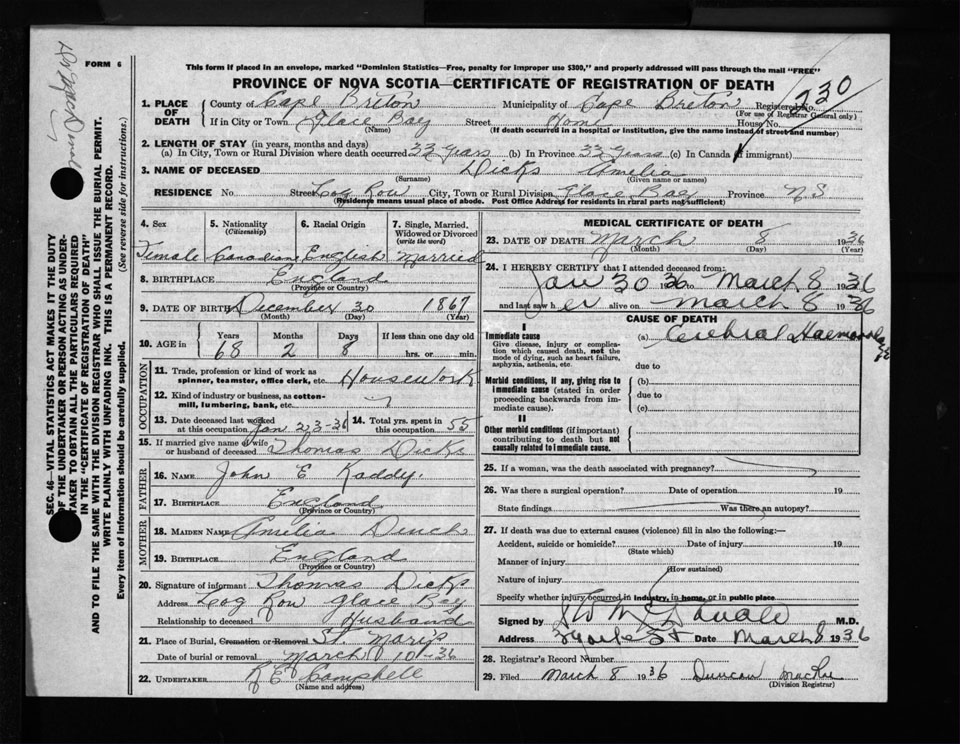 FORM 6
This form if placed in an envelope, marked "Dominion Statistics—Free, penalty for improper use $300," and properly addressed will pass through the mail "FREE"
PROVINCE OF NOVA SCOTIA—CERTIFICATE OF REGISTRATION OF DEATH
230
1. PLACE OF DEATH County of Cape Breton Municipality of Cape Breton Registered No.
(For use of Registrar General only)
If in City or Town Glace Bay Street Home House No.
(Name) (If death occurred in a hospital or institution, give the name instead of street and number)
2. LENGTH OF STAY (in years, months and days)
(a) In City, Town or Rural Division where death occurred 33 years (b) In Province 33 years (c) In Canada if immigrant)
3. NAME OF DECEASED Dicks Amelia
(Surname) (Given name or names)
RESIDENCE No. Street Log Row City, Town or Rural Division Glace Bay Province N.S
(Residence means usual place of abode. Post Office Address for residents in rural parts not sufficient)
4. Sex 5. Nationality (Citizenship) 6. Racial Origin 7. Single, Married, Widowed or Divorced (write the word)
Female Canadian English Married
8. BIRTHPLACE England
(Province or Country)
9. DATE OF BIRTH December 30 1867
(Month) (Day) (Year)
10. AGE in Years Months Days If less than one day old
68 2 8 hrs. or min.
OCCUPATION
11. Trade, profession or kind of work as spinner, teamster, office clerk, etc. Housework
12. Kind of industry or business, as cotton-mill, lumbering, bank, etc.
13. Date deceased last worked at this occupation Jan 23-36 14. Total yrs. spent in this occupation 55
15. If married give name of wife or husband of deceased Thomas Dicks
FATHER
16. NAME John E Kaddy.
17. BIRTHPLACE England
(Province or Country)
MOTHER
18. MAIDEN NAME Amelia Dinch
19. BIRTHPLACE England
(Province or Country)
20. Signature of informant Thomas Dicks
Address Log Row Glace Bay
Relationship to deceased Husband
21. Place of Burial, Cremation or Removal St. Marys
Date of burial or removal March 10-36
22. UNDERTAKER R E Campbell
(Name and address)
MEDICAL CERTIFICATE OF DEATH
23. DATE OF DEATH March 8 1936
(Month) (Day) (Year)
24. I HEREBY CERTIFY that I attended deceased from:
Jan 30 36 to March 8 1936
and last saw her alive on March 8 1936
CAUSE OF DEATH
I
Immediate cause (a) Cerebral Haemorrhage
Give disease, injury or complication which caused death, not the mode of dying, such as heart failure, asphyxia, asthenia, etc.
due to
Morbid conditions, if any, giving rise to immediate cause (stated in order proceeding backwards from immediate cause).
(b)
due to
(c)
II
Other morbid conditions (if important) contributing to death but not causally related to immediate cause.
25. If a woman, was the death associated with pregnancy?
26. Was there a surgical operation? Date of operation 19
State findings Was there an autopsy?
27. If death was due to external causes (violence) fill in also the following:-
Accident, suicide or homicide? Date of injury 19
(State which)
Manner of injury
(How sustained)
Nature of injury
Specify whether injury occurred in industry, in home, or in public place
Signed by M.D.
Address York St Date March 8 1936
28. Registrar's Record Number
29. Filed March 8 1936 Duncan
(Division Registrar)
SEC. 46—VITAL STATISTICS ACT MAKES IT THE DUTY
OF THE UNDERTAKER OR PERSON ACTING AS UNDER-
TAKER TO OBTAIN ALL THE PARTICULARS REQUIRED
IN THE "CERTIFICATE OF REGISTRATION OF DEATH"
AND TO FILE THE SAME WITH THE DIVISION REGISTRAR WHO SHALL ISSUE THE BURIAL PERMIT.
WRITE PLAINLY WITH UNFADING INK. THIS IS A PERMANENT RECORD.
Every item of information should be carefully supplied. (See reverse side for instructions.)